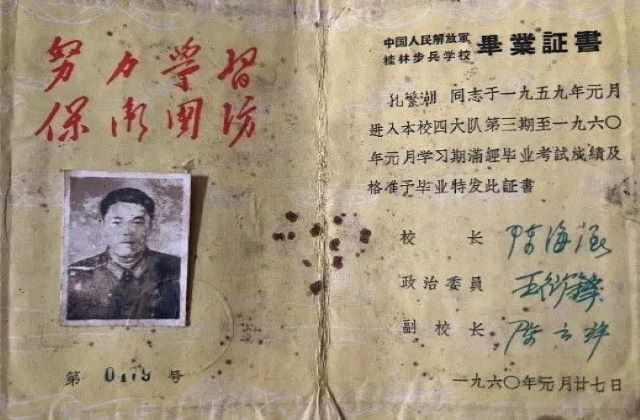 努力学習
保衛國防
第 0479 号
中国人民解放軍
桂林步兵学校
畢業証書
孔繁潮 同志于一九五九年元月
进入本校四大队第三期至一九六〇
年元月学习期满經毕业考試成績及
格准予毕业特发此証書
校長
政治委員 王
副校長
一九六〇年元月廿七日